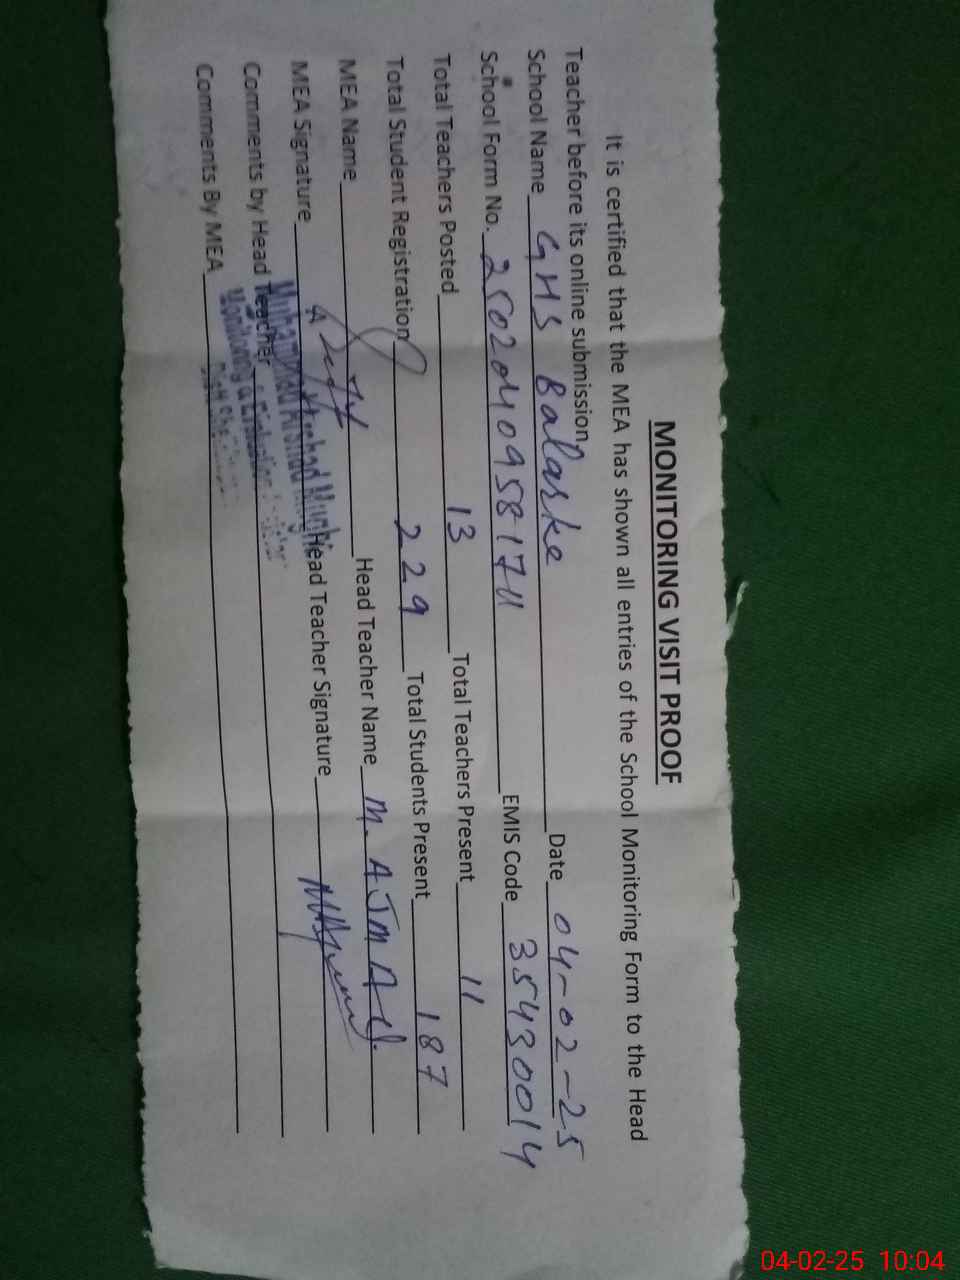 MONITORING VISIT PROOF
It is certified that the MEA has shown all entries of the School Monitoring Form to the Head
Teacher before its online submission.
School Name GHS Balarke Date 04-02-25
School Form No. EMIS Code 35430014
Total Teachers Posted 13 Total Teachers Present 11
Total Student Registration 229 Total Students Present 187
MEA Name Head Teacher Name M. AJMAL
MEA Signature Head Teacher Signature
Comments by Head Teacher
Comments By MEA
Muhammad Arshad Mughal
Monitoring & Evaluation
04-02-25 10:04